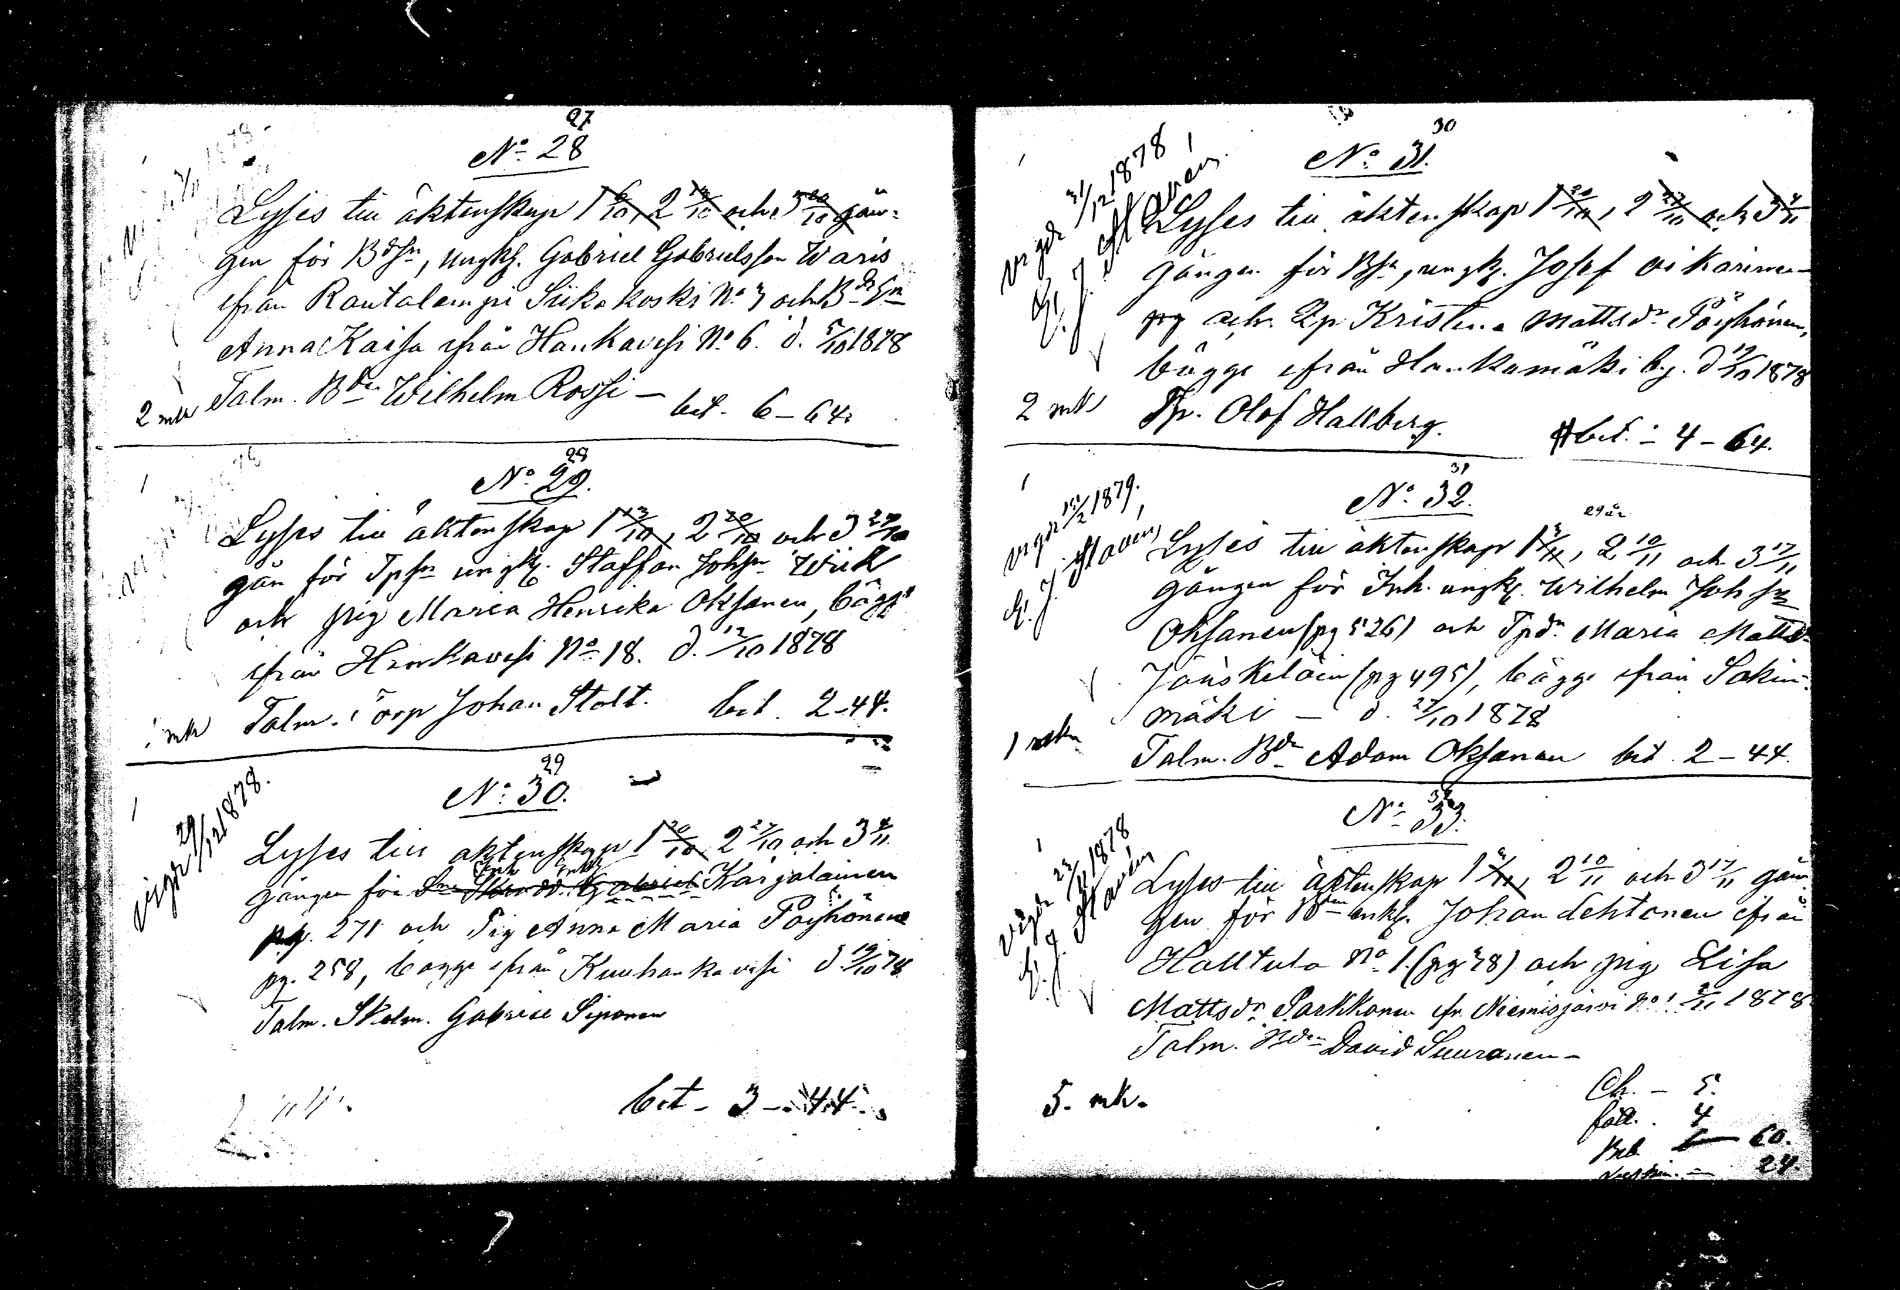 27
No 28
Lyses till äktenskap 1 6/10, 2 13/10 och 3 20/10 gån-
gen för Bdsn, ungk. Gabriel Gabrielsson Waris
från Rautalampi Siikakoski No 3 och Bdsn
Anna Kaisa från Hankavesi No 6. d. 5/10 1878
Talm. Bden Wilhelm Rossi — bet. 6 – 64.
2 mk
28
No 29.
Lyses till äktenskap 1 13/10, 2 20/10 och 3 27/10
gån för Tpsn ungk. Staffan Johsn Wirk
och pig Maria Henrika Oksanen, bägge
från Hankavesi No 18. d. 12/10 1878
Talm. Torp Johan Stolt. bet. 2–44.
mk
29
No 30.
vigde 29/12 1878.
Lyses till äktenskap 1 20/10 2 27/10 och 3 3/11
gången för Karjalainen
pg. 271 och Pig Anna Maria Pöyhönen
pg. 258, bägge från Kuuhankavesi d. 19/10 78
Talm. Skolm. Gabriel Siponen
bet – 3 – 44.
30
No 31.
vigde 31/12 1878
Lyses till äktenskap 1 20/10, 2 27/10 och 3 3/11
gången för Bsn, ungk. Josef Oikarinen
och Dp Kristina Mattsdr Pöyhönen,
bägge från Hankamäki by. d 19/10 1878
Tp. Olof Hallberg. bet. – 4 – 64.
2 mk
31
No 32.
29 år
vigde 15/2 1879.
Lyses till äktenskap 1 3/11, 2 10/11 och 3 17/11
gången för Inh. ungk. Wilhelm Johsn
Oksanen (pg 526) och Tpdr Maria Mattsdr
Jänskeläin (pg 495), bägge från Sakin-
mäki — d. 27/10 1878
Talm. Bdn Adam Oksanen bet. 2 – 44.
1 mk
32
No 33.
vigde 23/11 1878
Lyses till äktenskap 1 3/11, 2 10/11 och 3 17/11 gån-
gen för Bden enkl. Johan Lehtonen från
Halltula No 1. (pg 78) och pig Lisa
Mattsdr Parkkonen fr. Niemisjärvi No 1. 2/11 1878
Talm. Bden David Suuronen –
5. mk.
Ck. – 5.
fatt. . 4
60.
24.